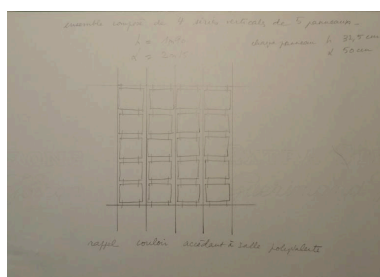 ensemble composé de 4 séries verticales de 5 panneaux.
chaque panneau h 32,5 cm
x 50 cm
rappel couloir accédant à salle polyvalente